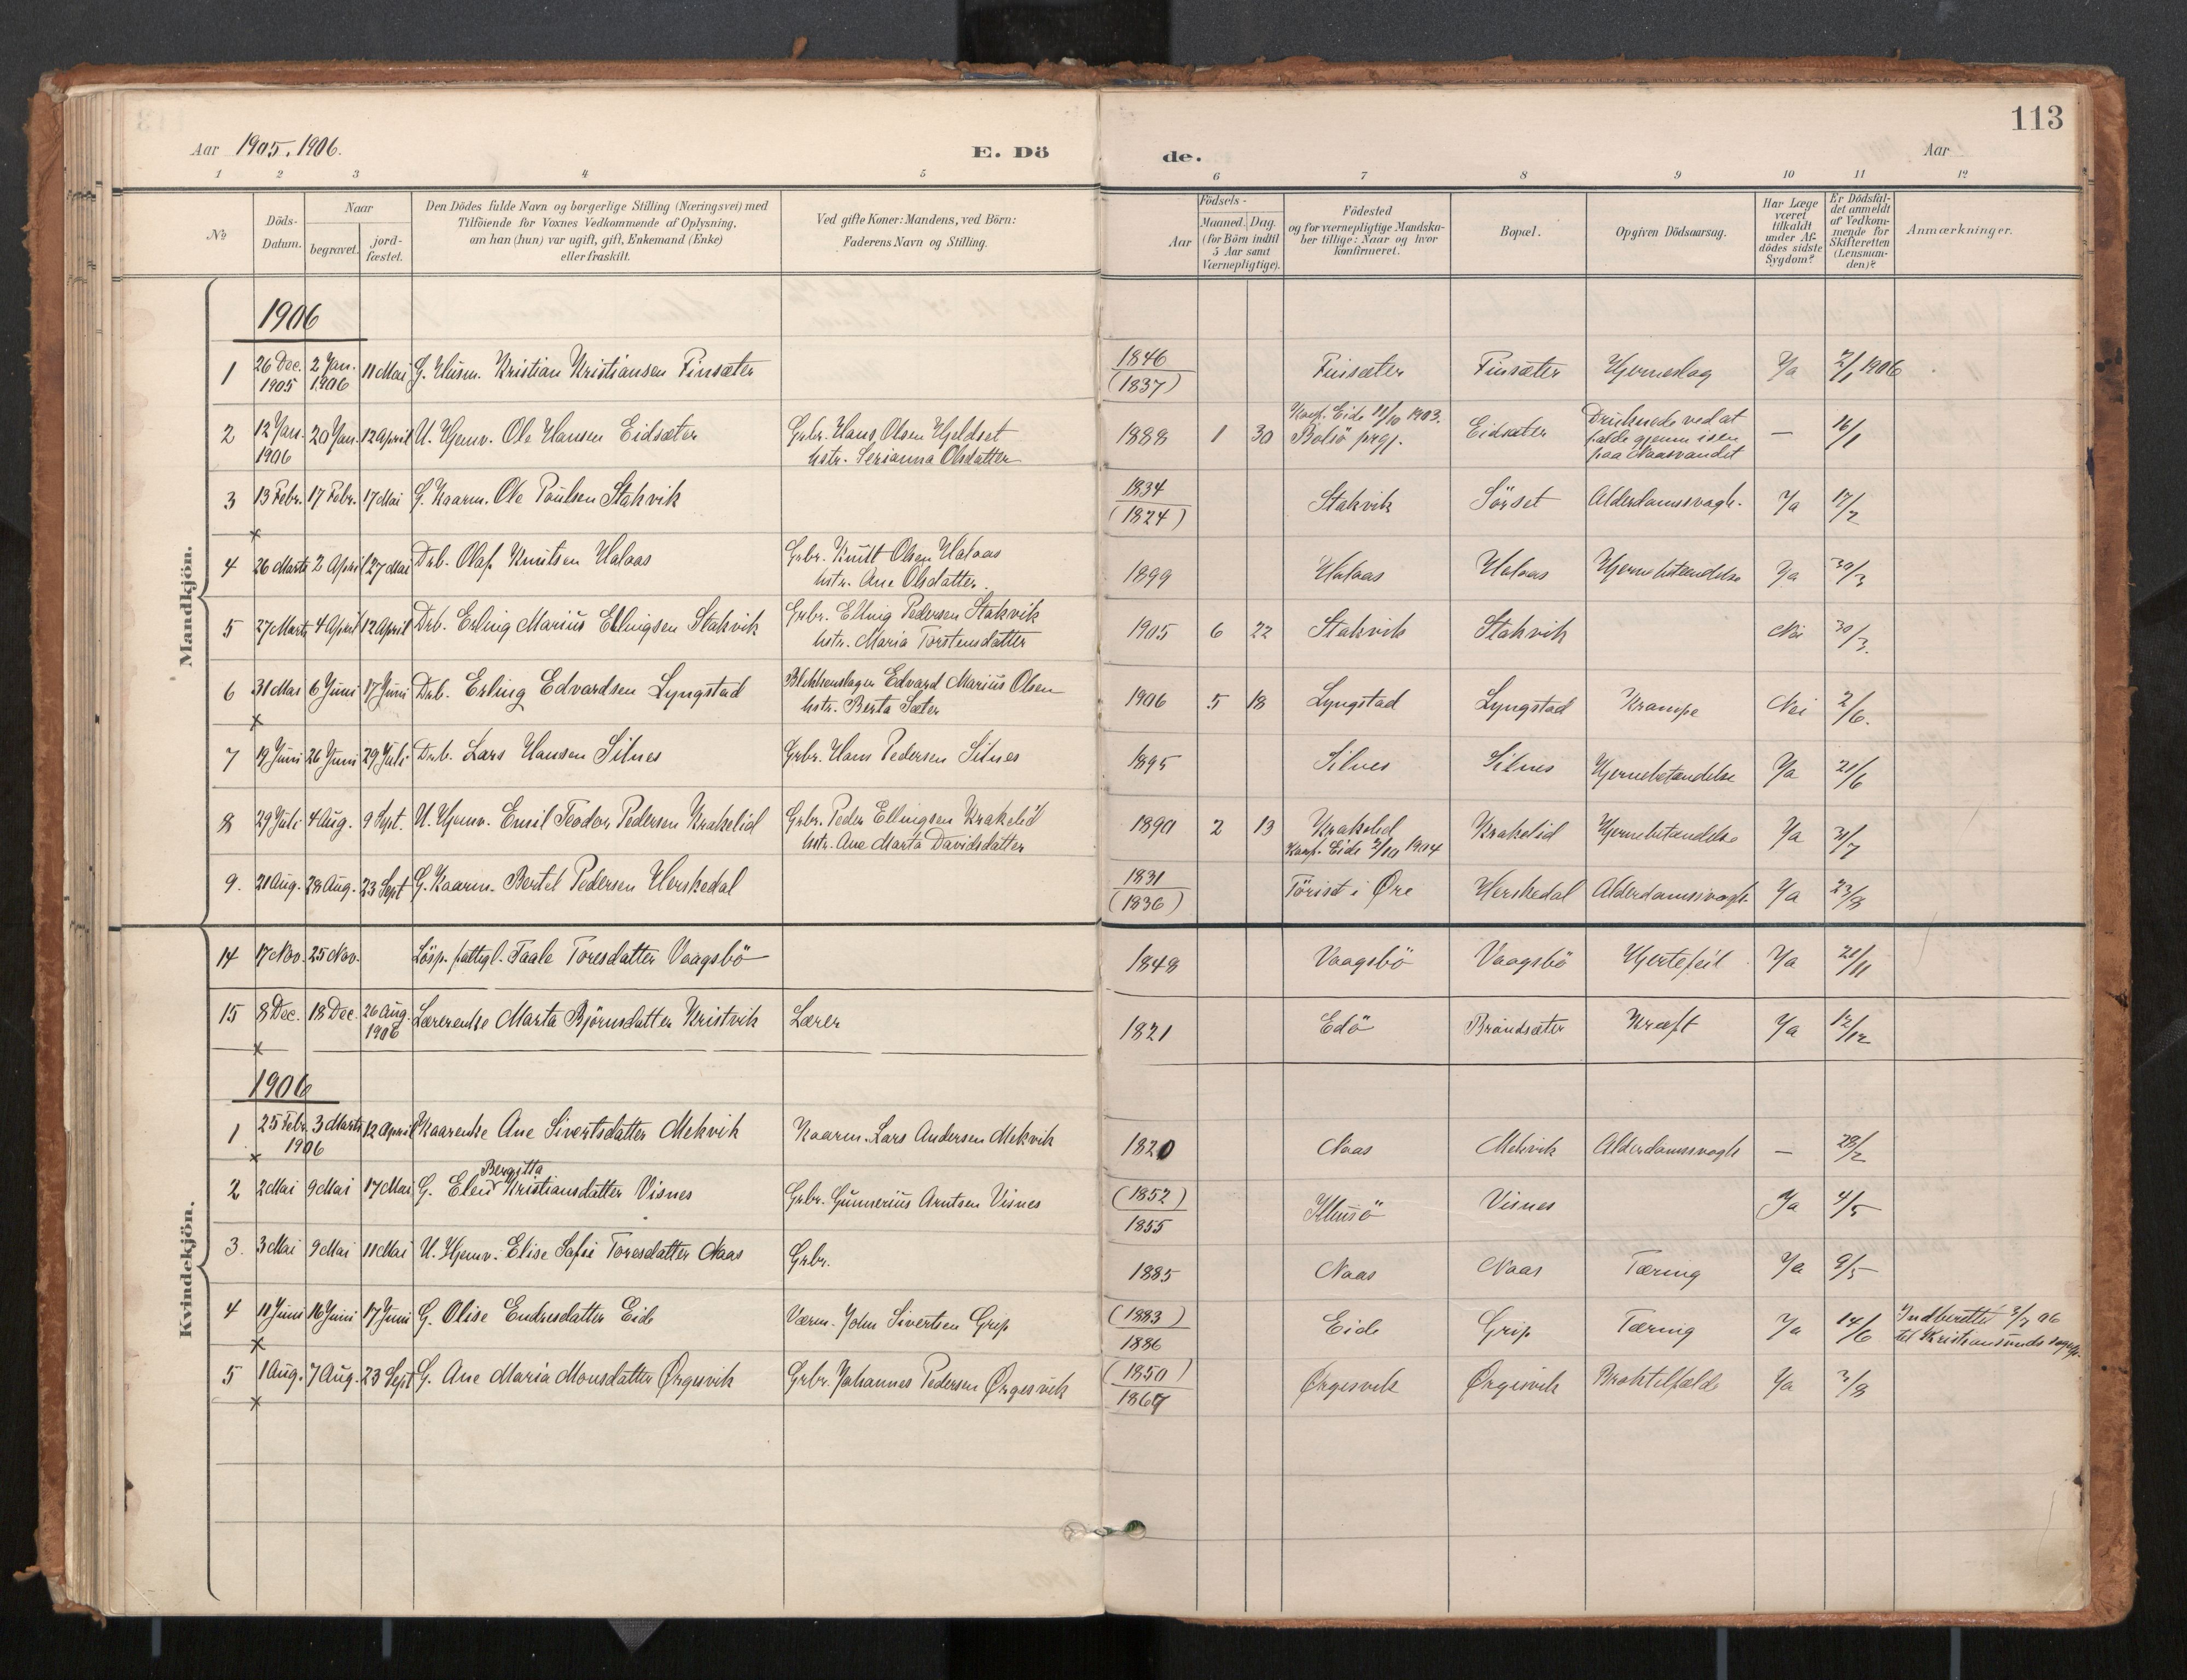 113
Aar 1905. 1906. E. Dö de. Aar
1 2 3 4 5 6 7 8 9 10 11 12
№ Döds-Datum. Naar begravet. jord-fæstet. Den Dödes fulde Navn og borgerlige Stilling (Næringsvei) med Tilföiende for Voxnes Vedkommende af Oplysning, om han (hun) var ugift, gift, Enkemand (Enke) eller fraskilt. Ved gifte Koner: Mandens, ved Börn: Faderens Navn og Stilling. Aar Födsels- Maaned. Dag. (for Börn indtil 5 Aar samt Værnepligtige). Födested og for værnepligtige Mandskaber tillige: Naar og hvor konfirmeret. Bopæl. Opgiven Dödsaarsag. Har Læge været tilkaldt under Afdödes sidste Sygdom? Er Dödsfaldet anmeldt af Vedkommende for Skifteretten (Lensmanden)? Anmærkninger.
Mandkjön.
1906
1 26 Dec. 1905 2 Jan. 1906 11 Mai G. Husm. Kristian Kristiansen Finsæter 1846 (1837) Finsæter Finsæter Hjerneslag Ja 2/1 1906
2 12 Jan. 1906 20 Jan. 12 April U. Hjemv. Ole Hansen Eidsæter Grbr. Hans Olsen Hjeldset hstr. Serianna Olsdatter 1888 1 30 Konf. Eide 11/10 1903. Bolsö prgj. Eidsæter Druknede ved at falde gjennem isen paa Naasvandet — 16/1
3 13 Febr. 17 Febr. 17 Mai G. Kaarm. Ole Poulsen Stakvik 1834 (1824) Stakvik Sörset Alderdomssvagh. Ja 17/2
4 26 Marts 2 April 27 Mai Drb. Olaf Knutsen Halaas Grbr. Knut Olsen Halaas hstr. Ane Olsdatter. 1899 Halaas Halaas Hjernebetændelse Ja 30/3
5 27 Marts 4 April 12 April Drb. Erling Marius Ellingsen Stakvik Grbr. Elling Pedersen Stakvik hstr. Maria Torstensdatter 1905 6 22 Stakvik Stakvik Nei 30/3.
6 31 Mai 6 Juni 17 Juni Drb. Erling Edvardsen Lyngstad Blikkenslager Edvard Marius Olsen hstr. Berta Sæter 1906 5 18 Lyngstad Lyngstad Krampe Nei 2/6.
7 19 Juni 26 Juni 29 Juli Drb. Lars Hansen Silnes Grbr. Hans Pedersen Silnes 1895 Silnes Silnes Hjernebetændelse Ja 21/6
8 29 Juli 4 Aug. 9 Sept. U. Hjemv. Emil Teodor Pedersen Krakelid Grbr. Peder Ellingsen Krakelid hstr. Ane Marta Davidsdatter 1890 2 13 Krakelid Konf. Eide 2/10 1904 Krakelid Hjernebetændelse Ja 31/7
9. 21 Aug. 28 Aug. 23 Sept G. Kaarm. Bertel Pedersen Herskedal 1831 (1836) Törist i Øre Herskedal Alderdomssvagh. Ja 23/8
Kvindekjön.
14 17 Nov. 25 Nov. Lösp. fattigl. Taale Toresdatter Vaagsbö 1848 Vaagsbö Vaagsbö Hjertefeil Ja 20/11
15 8 Dec. 18 Dec. 26 Aug. 1906 Lærerenke Marta Björnsdatter Kristvik Lærer 1821 Edö Brandsæter Kræft Ja 12/12
1906
1 25 Febr. 1906 3 Marts 12 April Kaarenke Ane Sivertsdatter Mekvik Kaarm. Lars Andersen Mekvik 1820 Naas Mekvik Alderdomssvagh — 28/2
2 2 Mai 9 Mai 17 Mai G. Elen Bergitta Kristiansdatter Visnes Grbr. Gunnerius Arntsen Visnes (1852) 1855 Visnes Ja 4/5
3. 3 Mai 9 Mai 11 Mai U. Hjemv. Elise Sofie Toresdatter Naas Grbr. 1885 Naas Naas Tæring Ja 9/5
4 11 Juni 16 Juni 17 Juni G. Olise Endresdatter Eide Værm. John Sivertsen Grip (1883) 1886 Eide Grip Tæring Ja 14/6 Indberettet 3/7 06 til Kristiansunds sogn.
5 1 Aug. 7 Aug. 23 Sept G. Ane Maria Monsdatter Ørgesvik Grbr. Johannes Pedersen Ørgesvik (1850) 1867 Ørgesvik Ørgesvik Ja 3/8